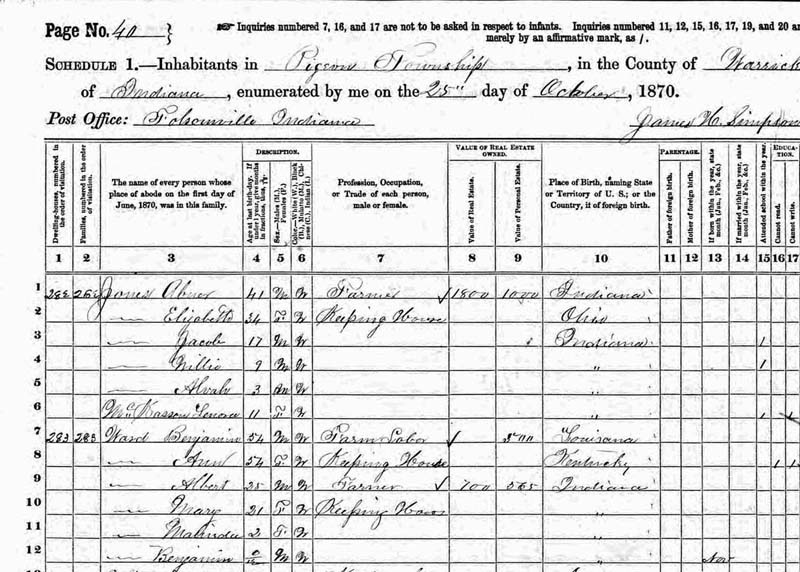 Page No. 40 } ☞ Inquiries numbered 7, 16, and 17 are not to be asked in respect to infants. Inquiries numbered 11, 12, 15, 16, 17, 19, and 20 ar
merely by an affirmative mark, as /.
SCHEDULE 1.—Inhabitants in Pigeon Township, in the County of Warrick
of Indiana, enumerated by me on the 25" day of October, 1870.
Post Office: Folsomville Indiana James H. Simpson
Dwelling-houses, numbered in the order of visitation.
Families, numbered in the order of visitation.
The name of every person whose place of abode on the first day of June, 1870, was in this family.
DESCRIPTION.
Age at last birth-day. If under 1 year, give months in fractions, thus,
Sex.—Males (M.), Females (F.)
Color.—White (W.), Black (B.), Mulatto (M.), Chinese (C.), Indian (I.)
Profession, Occupation, or Trade of each person, male or female.
VALUE OF REAL ESTATE OWNED.
Value of Real Estate.
Value of Personal Estate.
Place of Birth, naming State or Territory of U. S.; or the Country, if of foreign birth.
PARENTAGE.
Father of foreign birth.
Mother of foreign birth.
If born within the year, state month (Jan., Feb., &c.)
If married within the year, state month (Jan., Feb., &c.)
Attended school within the year.
EDUCA-TION.
Cannot read.
Cannot write.
1 2 3 4 5 6 7 8 9 10 11 12 13 14 15 16 17
1 282 Jones Abner 41 M W Farmer ✓ 1800 1000 Indiana
2 — Elizabeth 34 F W Keeping House Ohio
3 — Jacob 17 M W Indiana 1
4 — Willie 9 M W " 1
5 — Alvah 3 M W "
6 F W " 1
7 283 283 Ward Benjamin 54 M W Farm Labor ✓ Louisana
8 — Ann 54 F W Keeping House Kentucky 1 1
9 — Albert 25 M W Farmer ✓ 700 565 Indiana
10 — Mary 21 F W Keeping House "
11 — Malinda 2 F W "
12 — Benjamin M W " Nov